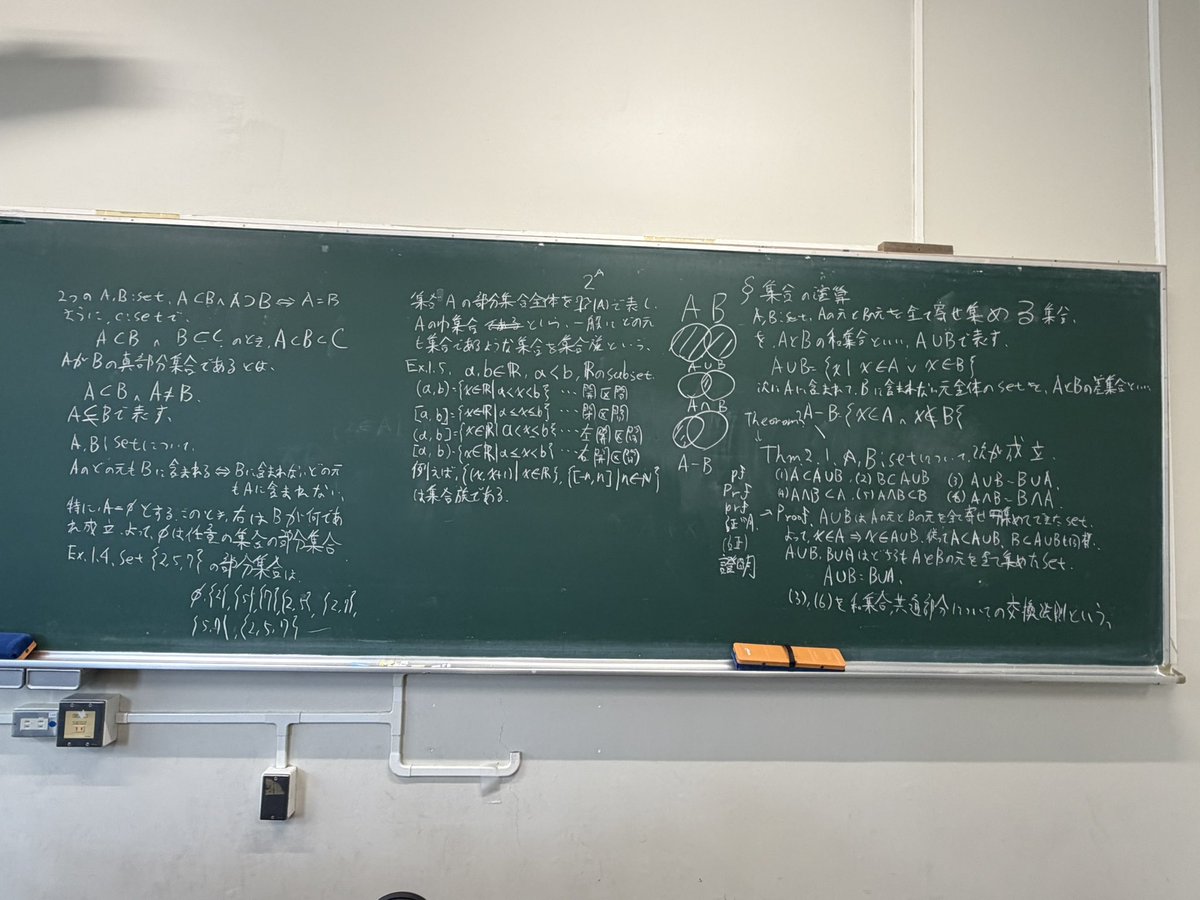 2つのA,B:set, A⊂B∧A⊃B⇔A=B
さらに, C:setで,
A⊂B ∧ B⊂C のとき, A⊂B⊂C
AがBの真部分集合であるとは,
A⊂B ∧ A≠B.
A⊊Bで表す.
A,B:setについて,
Aのどの元もBに含まれる⇔Bに含まれないどの元
もAに含まれない.
特に, A=φとする. このとき, 右はBが何であ
れ成立. よって, φは任意の集合の部分集合
Ex.1.4. set {2,5,7}の部分集合は,
φ,{2},{5},{7},{2,5},{2,7},
{5,7},{2,5,7}
2^A
集合Aの部分集合全体を (A)で表し,
Aの巾集合 という. 一般にどの元
も集合であるような集合を集合族という.
Ex.1.5. a,b∈ℝ, a<b, ℝのsubset.
(a,b)={x∈ℝ|a<x<b} … 開区間
[a,b]={x∈ℝ|a≤x≤b} … 閉区間
(a,b]={x∈ℝ|a<x≤b} … 左開区間
[a,b)={x∈ℝ|a≤x<b} … 右開区間
例えば, {(x,x+1)|x∈ℝ}, {[-n,n]|n∈ℕ}
は集合族である.
A B
A∪B
A∩B
A-B
§集合の演算
A,B:set, Aの元とBの元を全て寄せ集める集合,
を, AとBの和集合といい, A∪Bで表す.
A∪B={x|x∈A∨x∈B}
次にAに含まれて, Bに含まれない元全体のsetを, AとBの差集合といい
A-B={x∈A∧x∉B}
Theorem
Thm2.1. A,B:setについて, 次が成立.
(1)A⊂A∪B, (2)B⊂A∪B (3)A∪B=B∪A.
(4)A∩B⊂A, (5)A∩B⊂B (6)A∩B=B∩A.
pf
Prf
prf
証明
(証)
證明
→Proof. A∪BはAの元とBの元を全て寄せ集めてできたset.
よって, x∈A⇒x∈A∪B. 従ってA⊂A∪B, B⊂A∪Bも同様.
A∪B, B∪AはどちらもAとBの元を全て集めたset.
A∪B=B∪A.
(3),(6)を和集合,共通部分についての交換法則という.